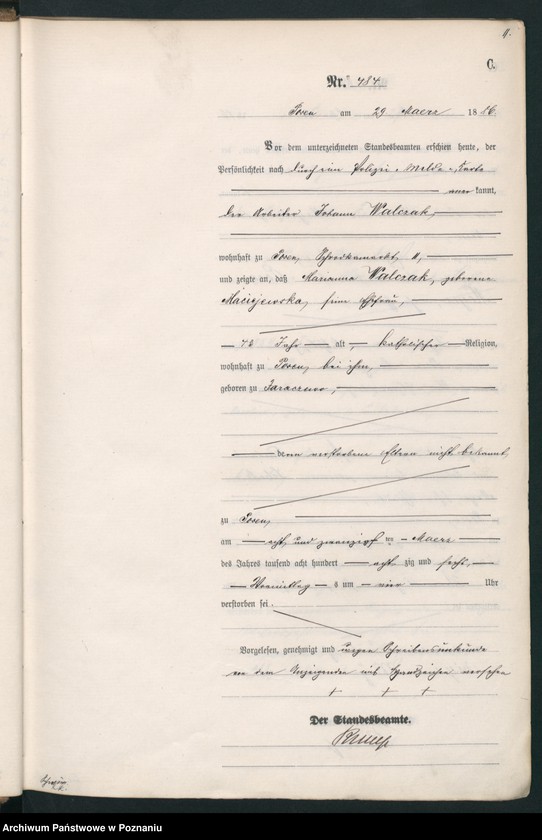 11.
C.
Nr. 484
Posen am 29 Maerz 1886.
Vor dem unterzeichneten Standesbeamten erschien heute, der
Persönlichkeit nach durch eine Polizei-Melde-Karte
aner kannt,
der Arbeiter Johann Walczak,
wohnhaft zu Posen, Schrodkamarkt, 11,
und zeigte an, daß Marianna Walczak, geborene
Maciejewska, seine Ehefrau,
72 Jahr alt, katholischer Religion,
wohnhaft zu Posen, bei ihm,
geboren zu Jaraczewo,
deren verstorbene Eltern nicht bekannt,
zu Posen,
am acht und zwanzigsten Maerz
des Jahres tausend acht hundert acht zig und sechs,
Vormittags um vier Uhr
verstorben sei.
Vorgelesen, genehmigt und wegen Schreibensunkunde
von dem Anzeigenden mit Handzeichen versehen
+ + +
Der Standesbeamte.
Archiwum Państwowe w Poznaniu